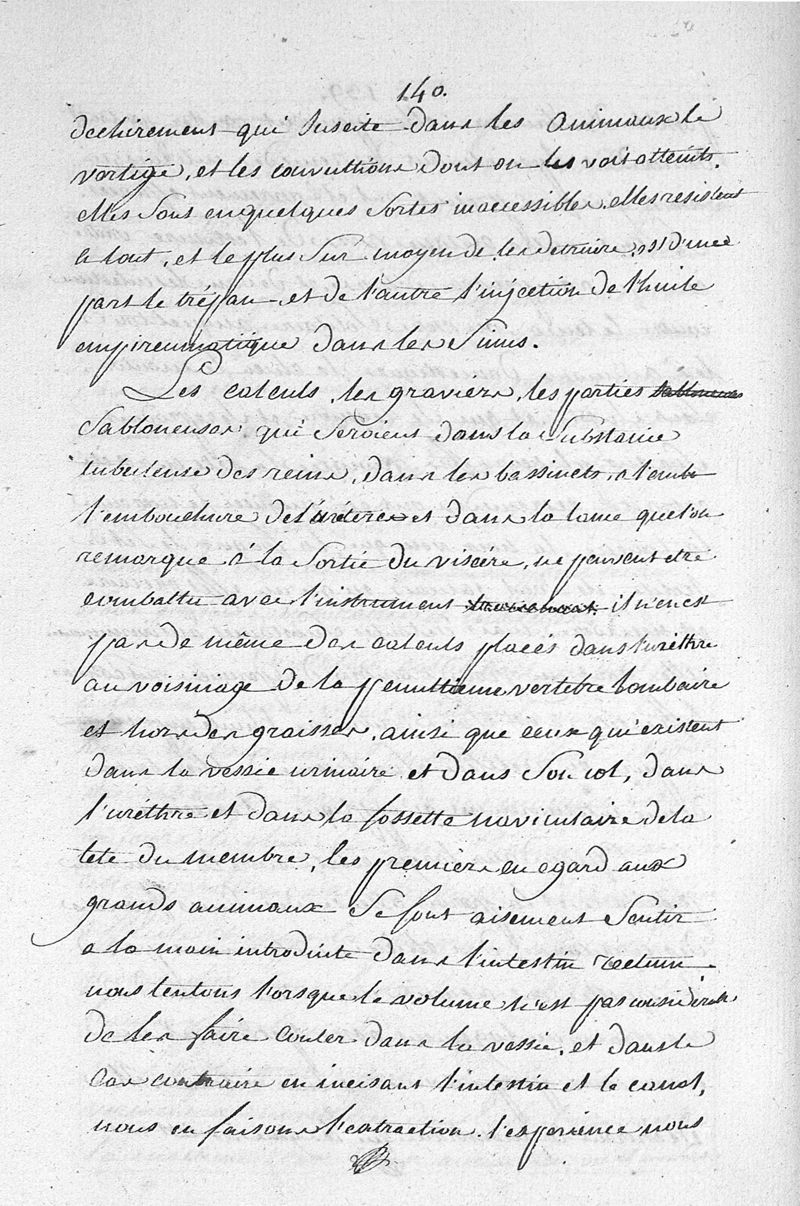 140.
dechirement qui suscite dans les animaux le
vertige, et les convultions dont on les voit atteints.
elles sont en quelques sortes inaccessibles. elles resistent
a tout, et le plus sur moyen de les detruire, est d'une
part le trépan et de l'autre l'injection de l'huile
empireumatique dans les sinus.
Les calculs, les graviers, les parties sabloneuses
sabloneuses qui seroient dans la substance
tubuleuse des reins, dans les bassinets, a l'emb
l'embouchure de l'uretere et dans la lame que l'on
remarque à la sortie du viscére, ne peuvent etre
combattu avec l'instrument il n'en est
pas de même des calculs placés dans l'uréthre
au voisinage de la penultieme vertebre lombaire
et hors des graisses, ainsi que ceux qui existent
dans la vessie urinaire et dans son col, dans
l'uréthre et dans la fossette naviculaire de la
tete du membre, les premiers en egard aux
grands animaux se font aisement sentir
a la main introduite dans l'intestin rectum.
nous tentons lorsque le volume n'est pas considerable
de les faire couler dans la vessie, et dans le
cas contraire en incisant l'intestin et le canal,
nous en faisons l'extraction. l'experience nous